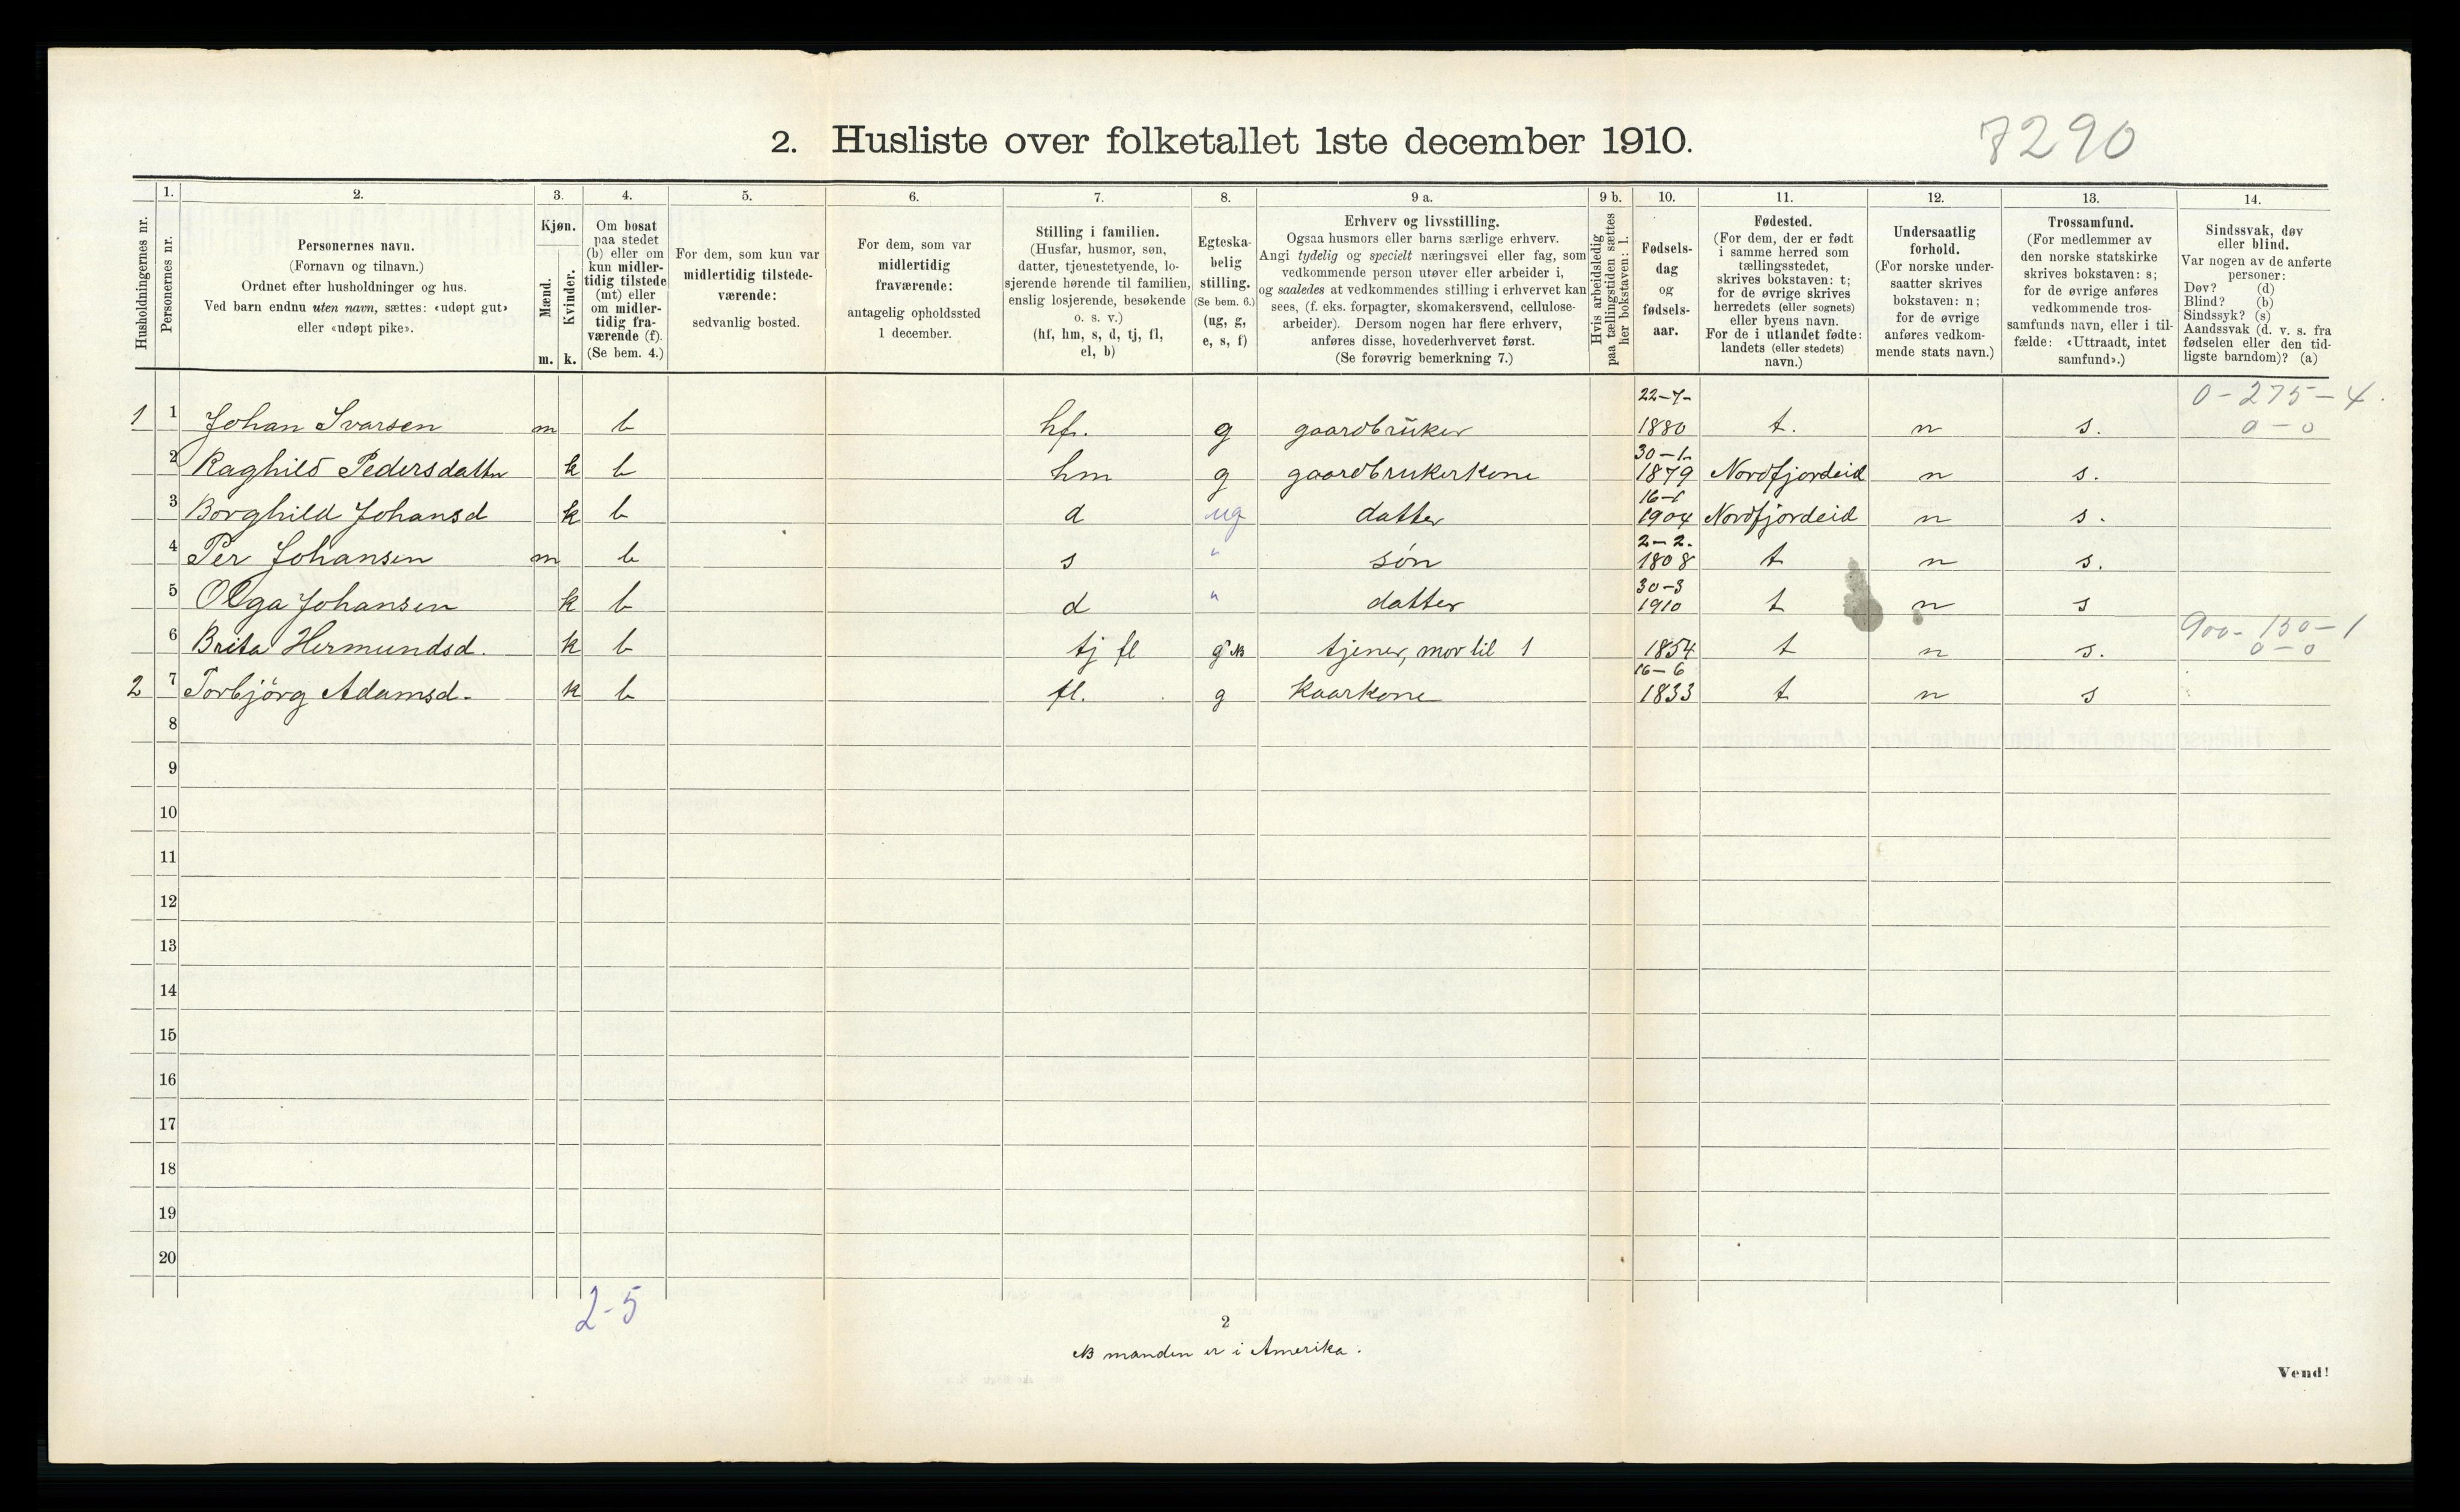 2. Husliste over folketallet 1ste december 1910.
7290
Husholdningernes nr.
1.
Personernes nr.
2.
Personernes navn.
(Fornavn og tilnavn.)
Ordnet efter husholdninger og hus.
Ved barn endnu uten navn, sættes: «udøpt gut»
eller «udøpt pike».
3.
Kjøn.
Mænd.
Kvinder.
m. k.
4.
Om bosat
paa stedet
(b) eller om
kun midler-
tidig tilstede
(mt) eller
om midler-
tidig fra-
værende (f).
(Se bem. 4.)
5.
For dem, som kun var
midlertidig tilstede-
værende:
sedvanlig bosted.
6.
For dem, som var
midlertidig
fraværende:
antagelig opholdssted
1 december.
7.
Stilling i familien.
(Husfar, husmor, søn,
datter, tjenestetyende, lo-
sjerende hørende til familien,
enslig losjerende, besøkende
o. s. v.)
(hf, hm, s, d, tj, fl,
el, b)
8.
Egteska-
belig
stilling.
(Se bem. 6.)
(ug, g,
e, s, f)
9 a.
Erhverv og livsstilling.
Ogsaa husmors eller barns særlige erhverv.
Angi tydelig og specielt næringsvei eller fag, som
vedkommende person utøver eller arbeider i,
og saaledes at vedkommendes stilling i erhvervet kan
sees, (f. eks. forpagter, skomakersvend, cellulose-
arbeider). Dersom nogen har flere erhverv,
anføres disse, hovederhvervet først.
(Se forøvrig bemerkning 7.)
9 b.
Hvis arbeidsledig
paa tællingstiden sættes
her bokstaven: l.
10.
Fødsels-
dag
og
fødsels-
aar.
11.
Fødested.
(For dem, der er født
i samme herred som
tællingsstedet,
skrives bokstaven: t;
for de øvrige skrives
herredets (eller sognets)
eller byens navn.
For de i utlandet fødte:
landets (eller stedets)
navn.)
12.
Undersaatlig
forhold.
(For norske under-
saatter skrives
bokstaven: n;
for de øvrige
anføres vedkom-
mende stats navn.)
13.
Trossamfund.
(For medlemmer av
den norske statskirke
skrives bokstaven: s;
for de øvrige anføres
vedkommende tros-
samfunds navn, eller i til-
fælde: «Uttraadt, intet
samfund».)
14.
Sindssvak, døv
eller blind.
Var nogen av de anførte
personer:
Døv? (d)
Blind? (b)
Sindssyk? (s)
Aandssvak (d. v. s. fra
fødselen eller den tid-
ligste barndom)? (a)
1 1 Johan Ivarsen m b hf. g gaardbruker 22-7- 1880 t. n s. 0-275-4.
0-0
2 Raghild Pedersdattr k b hm g gaardbrukerkone 30-1- 1879 Nordfjordeid n s.
3 Borghild Johansd k b d ug datter 16-1 1904 Nordfjordeid n s.
4 Per Johansen m b s " søn 2-2. 1808 t n s.
5 Olga Johansen k b d " datter 30-3 1910 t n s
6 Brita Hermundsd. k b tj fl g NB tjener, mor til 1 1854 t n s. 900-150-1
0-0
2 7 Torbjörg Adamsd. k b fl. g kaarkone 16-6 1833 t n s
8
9
10
11
12
13
14
15
16
17
18
19
20
2-5
2
NB manden er i Amerika.
Vend!